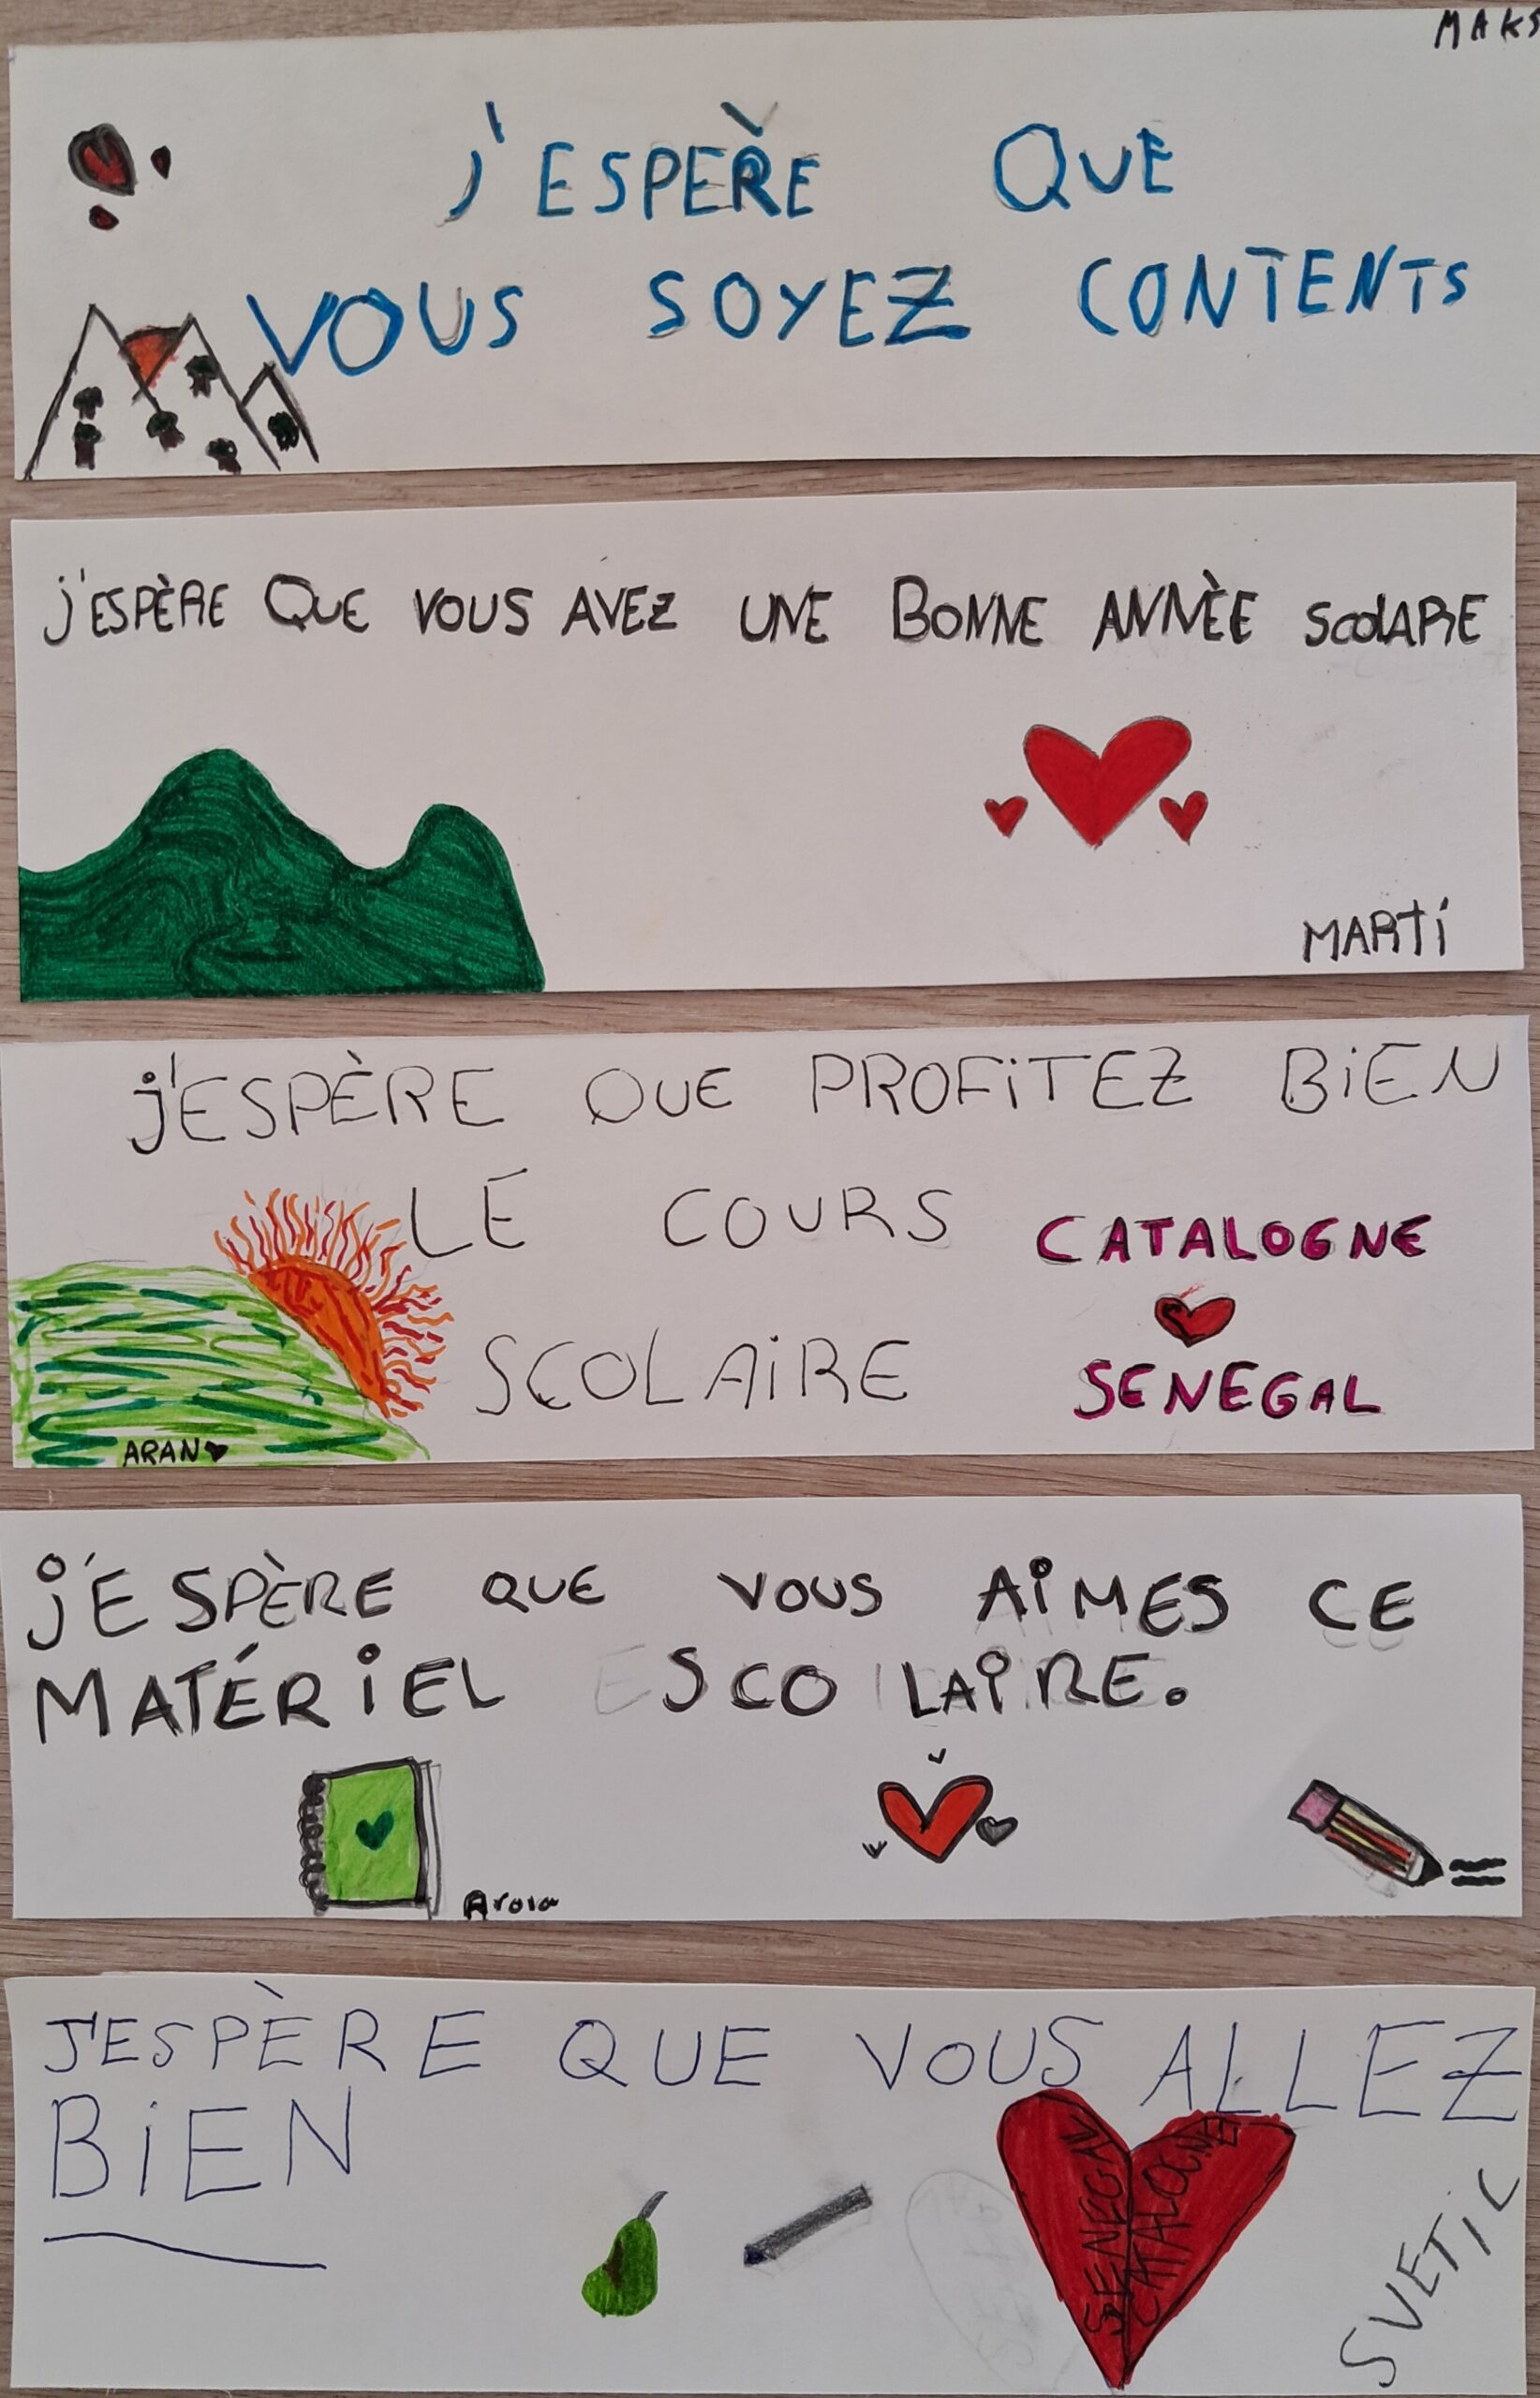 MAKS
J'ESPERE QUE
VOUS SOYEZ CONTENTS
J'ESPÈRE QUE VOUS AVEZ UNE BONNE ANNÈE SCOLAIRE
MARTÍ
J'ESPÈRE QUE PROFITEZ BIEN
LE COURS
SCOLAIRE
CATALOGNE
SENEGAL
ARAN
J'ESPÈRE QUE VOUS AIMES CE
MATÉRIEL SCOLAIRE.
J'ESPÈRE QUE VOUS ALLEZ
BIEN
SENEGAL
CATALOGNE
SVETIC